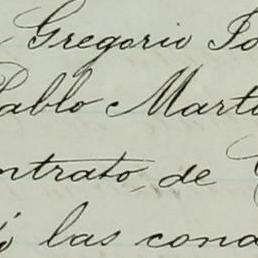 Gregorio
Pablo Mart
ntrato de
las cond